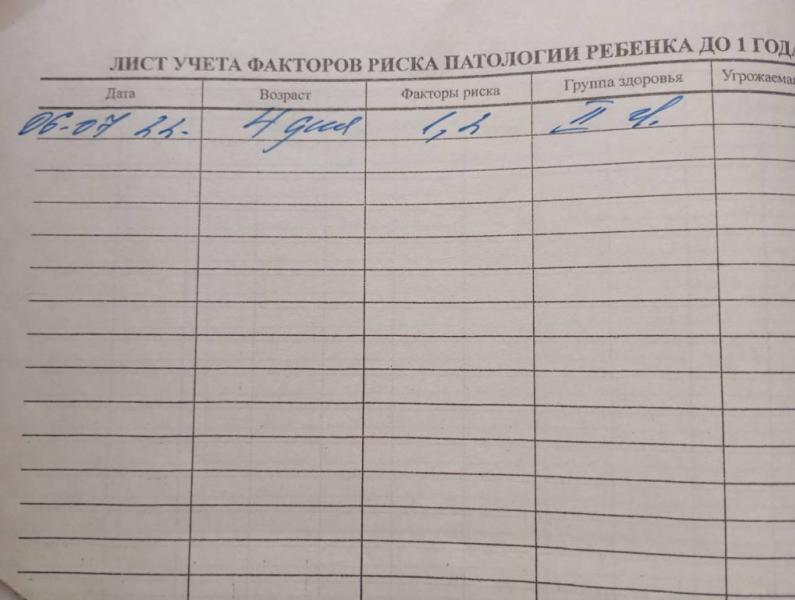 ЛИСТ УЧЕТА ФАКТОРОВ РИСКА ПАТОЛОГИИ РЕБЕНКА ДО 1 ГОДА
Дата Возраст Факторы риска Группа здоровья Угрожаема
06-07 22. 4 дня 1, 2 II